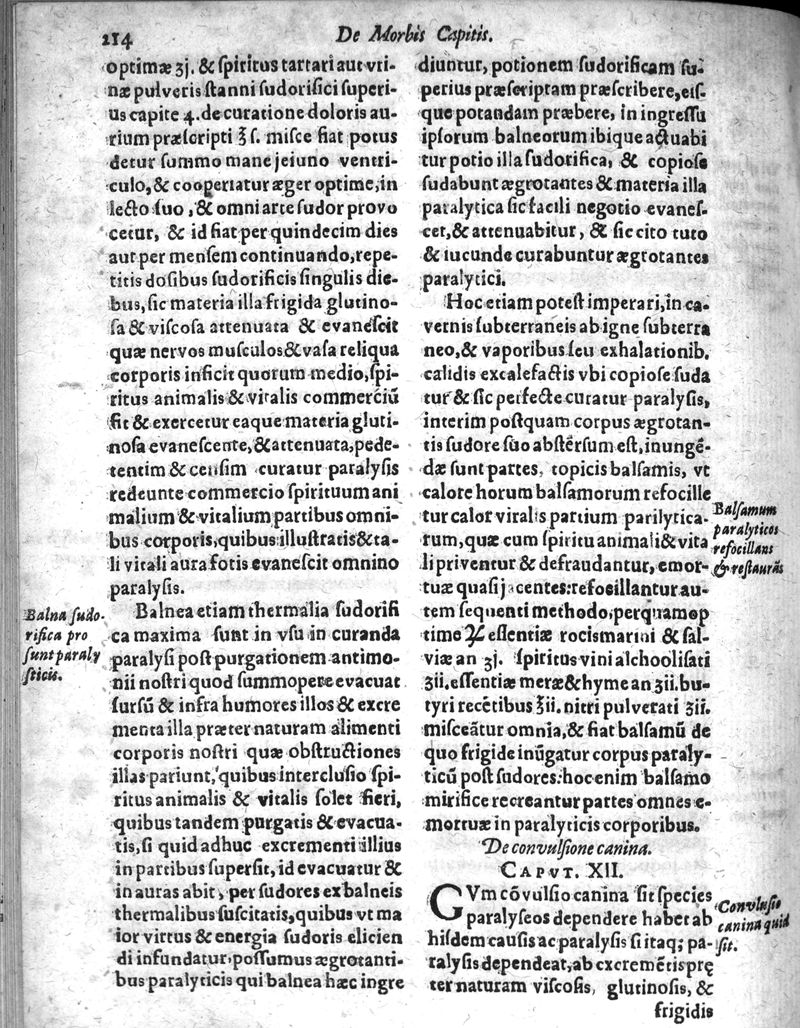 214
De Morbis Capitis.
optimæ ʒj. & ſpiritus tartari aut vri-
næ pulveris ſtanni ſudorifici ſuperi-
us capite 4. de curatione doloris au-
rium præſcripti ℥ ſ. miſce fiat potus
detur ſummo mane jejuno ventri-
culo, & cooperiatur æger optime, in
lecto ſuo, & omni arte ſudor provo
cetur, & id fiat per quindecim dies
aut per menſem continuando, repe-
titis doſibus ſudorificis ſingulis die-
bus, ſic materia illa frigida glutino-
ſa & viſcoſa attenuata & evaneſcit
quæ nervos muſculos & vaſa reliqua
corporis inficit quorum medio, ſpi-
ritus animalis & vitalis commerciũ
fit & exercetur eaque materia gluti-
noſa evaneſcente, & attenuata, pede-
tentim & cenſim curatur paralyſis
redeunte commercio ſpirituum ani
malium & vitalium partibus omni-
bus corporis, quibus illuſtratis & ta-
li vitali aura fotis evaneſcit omnino
paralyſis.
Balnea etiam thermalia ſudorifi
ca maxima ſunt in vſu in curanda
paralyſi poſt purgationem antimo-
nii noſtri quod ſummopere evacuat
ſurſũ & infra humores illos & excre
menta illa præter naturam alimenti
corporis noſtri quæ obſtructiones
illas pariunt, quibus intercluſio ſpi-
ritus animalis & vitalis ſolet fieri,
quibus tandem purgatis & evacua-
tis, ſi quid adhuc excrementi illius
in partibus ſuperſit, id evacuatur &
in auras abit, per ſudores ex balneis
thermalibus ſuſcitatis, quibus vt ma
ior virtus & energia ſudoris elicien
di infundatur, poſſumus ægrotanti-
bus paralyticis qui balnea hæc ingre
Balna ſudo-
rifica pro
ſunt paraly
ſticis.
diuntur, potionem ſudorificam ſu-
perius præſcriptam præſcribere, eiſ-
que potandam præbere, in ingreſſu
ipſorum balneorum ibique actuabi
tur potio illa ſudorifica, & copioſe
ſudabunt ægrotantes & materia illa
paralytica ſic facili negotio evaneſ-
cet, & attenuabitur, & ſic cito tuto
& iucunde curabuntur ægrotantes
paralytici.
Hoc etiam poteſt imperari, in ca-
vernis ſubterraneis ab igne ſubterra
neo, & vaporibus ſeu exhalationib.
calidis excalefactis vbi copioſe ſuda
tur & ſic perfecte curatur paralyſis,
interim poſtquam corpus ægrotan-
tis ſudore ſuo abſterſum eſt, inungẽ-
dæ ſunt partes, topicis balſamis, vt
calore horum balſamorum refocille
tur calor viralis partium parilytica-
rum, quæ cum ſpiritu animali & vita
li priventur & defraudantur, emor-
tuæ quaſi jacentes: refocillantur au-
tem ſequenti methodo, per quam op
time ♃ eſſentiæ rociſmarini & ſal-
viæ an ʒj. ſpiritus vini alchooliſati
ʒii. eſſentiæ meræ & hyme an ʒii. bu-
tyri recẽtibus ℥ii. nitri pulverati ʒii.
miſceãtur omnia, & fiat balſamũ de
quo frigide inũgatur corpus paraly-
ticũ poſt ſudores: hoc enim balſamo
mirifice recreantur partes omnes e-
mortuæ in paralyticis corporibus.
Balſamum
paralyticos
refocillans
& reſtaurãs
De convulſione canina.
CAPVT. XII.
GVm cõvulſio canina ſit ſpecies
paralyſeos dependere habet ab
hiſdem cauſis ac paralyſis ſi itaq; pa-
ralyſis dependeat, ab excremẽtis prę
ter naturam viſcoſis, glutinoſis, &
frigidis
Convulſio
canina quid
ſit.